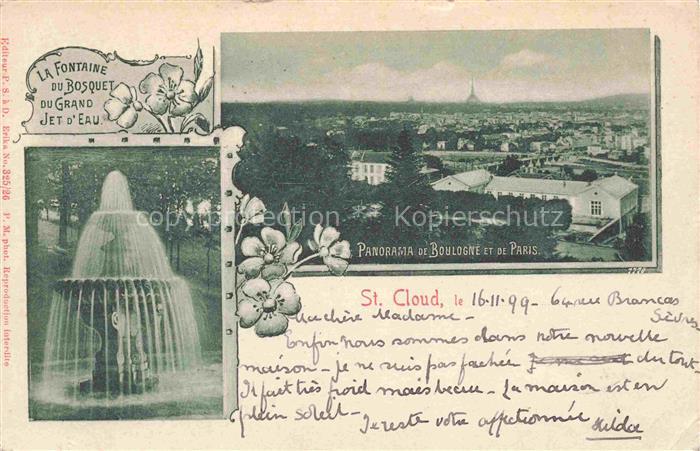 LA FONTAINE
DU BOSQUET
DU GRAND
JET D'EAU.
Editeur-P. S. à D. Erika No. 325/26 P. M. phot. Reproduction interdite
copyright protection Kopierschutz
PANORAMA DE BOULOGNE ET DE PARIS.
St. Cloud, le 16.11.99 - 64 rue Brancas
Sèvres
Ma chère Madame -
Enfin nous sommes dans notre nouvelle
maison - je ne suis pas fachée du tout
Il fait très froid mais beau - La maison est en
plein soleil -
Je reste votre affectionnée Hilda